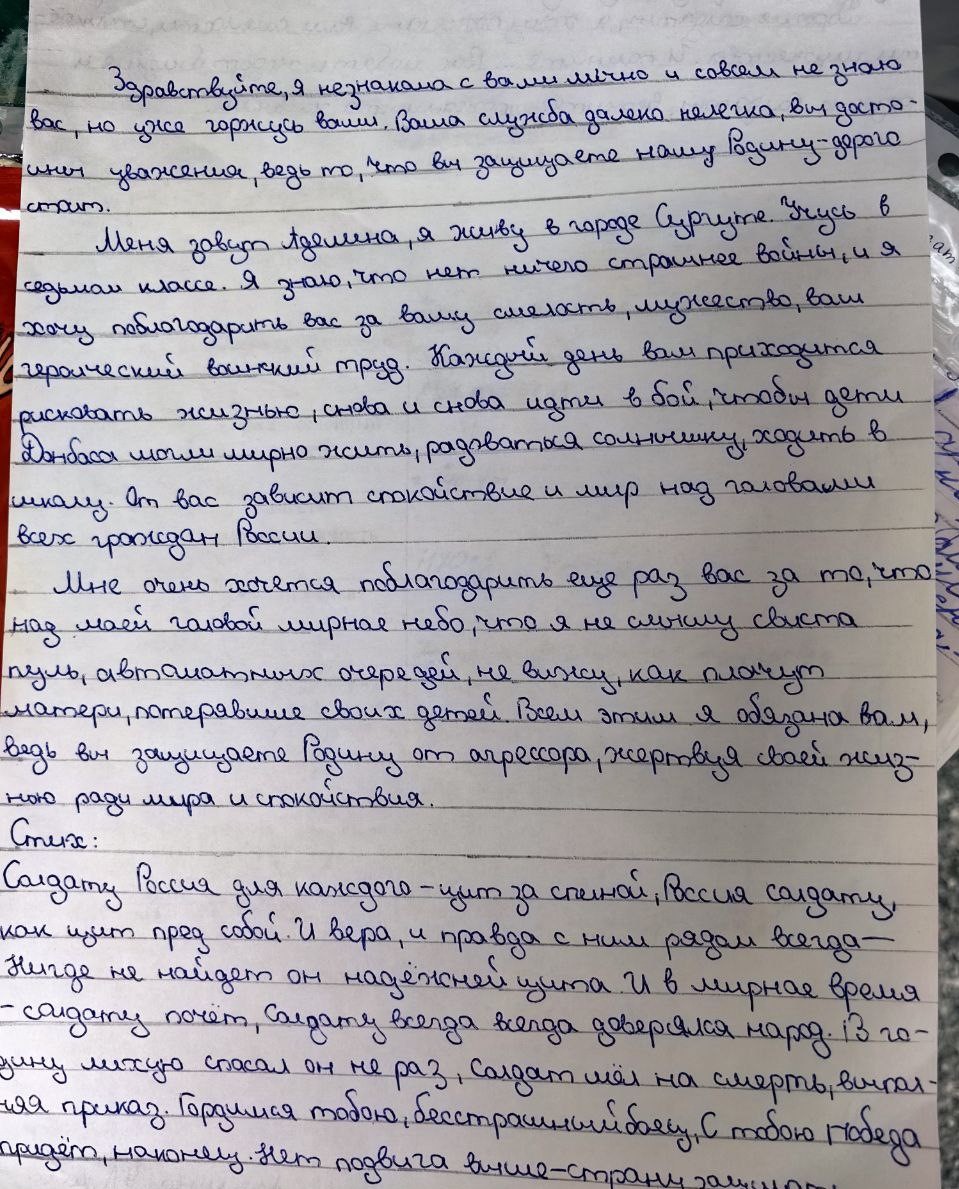 Здравствуйте, я незнакома с вами лично и совсем не знаю
вас, но уже горжусь вами. Ваша служба далеко нелегка, вы досто-
ины уважения, ведь то, что вы защищаете нашу Родину-дорого
стоит.
Меня зовут Аделина, я живу в городе Сургуте. Учусь в
седьмом классе. Я знаю, что нет ничего страшнее войны, и я
хочу поблагодарить вас за вашу смелость, мужество, ваш
героический воинский труд. Каждый день вам приходится
рисковать жизнью, снова и снова идти в бой, чтобы дети
Донбаса могли мирно жить, радоваться солнышку, ходить в
школу. От вас зависит спокойствие и мир над головами
всех граждан России.
Мне очень хочется поблагодарить еще раз вас за то, что
над моей головой мирное небо, что я не слышу свиста
пуль, автоматных очередей, не вижу, как плачут
матери, потерявшие своих детей. Всем этим я обязана вам,
ведь вы защищаете Родину от агрессора, жертвуя своей жиз-
нью ради мира и спокойствия.
Стих:
Солдату Россия для каждого - щит за спиной, Россия солдату,
как щит пред собой. И вера, и правда с ним рядом всегда—
Нигде не найдет он надёжней щита. И в мирное время
- солдату почёт, Солдату всегда всегда доверялся народ. В го-
дину лихую спасал он не раз, Солдат шёл на смерть, выпол-
няя приказ. Гордимся тобою, бесстрашный боец, С тобою Победа
придёт, наконец. Нет подвига выше-страну